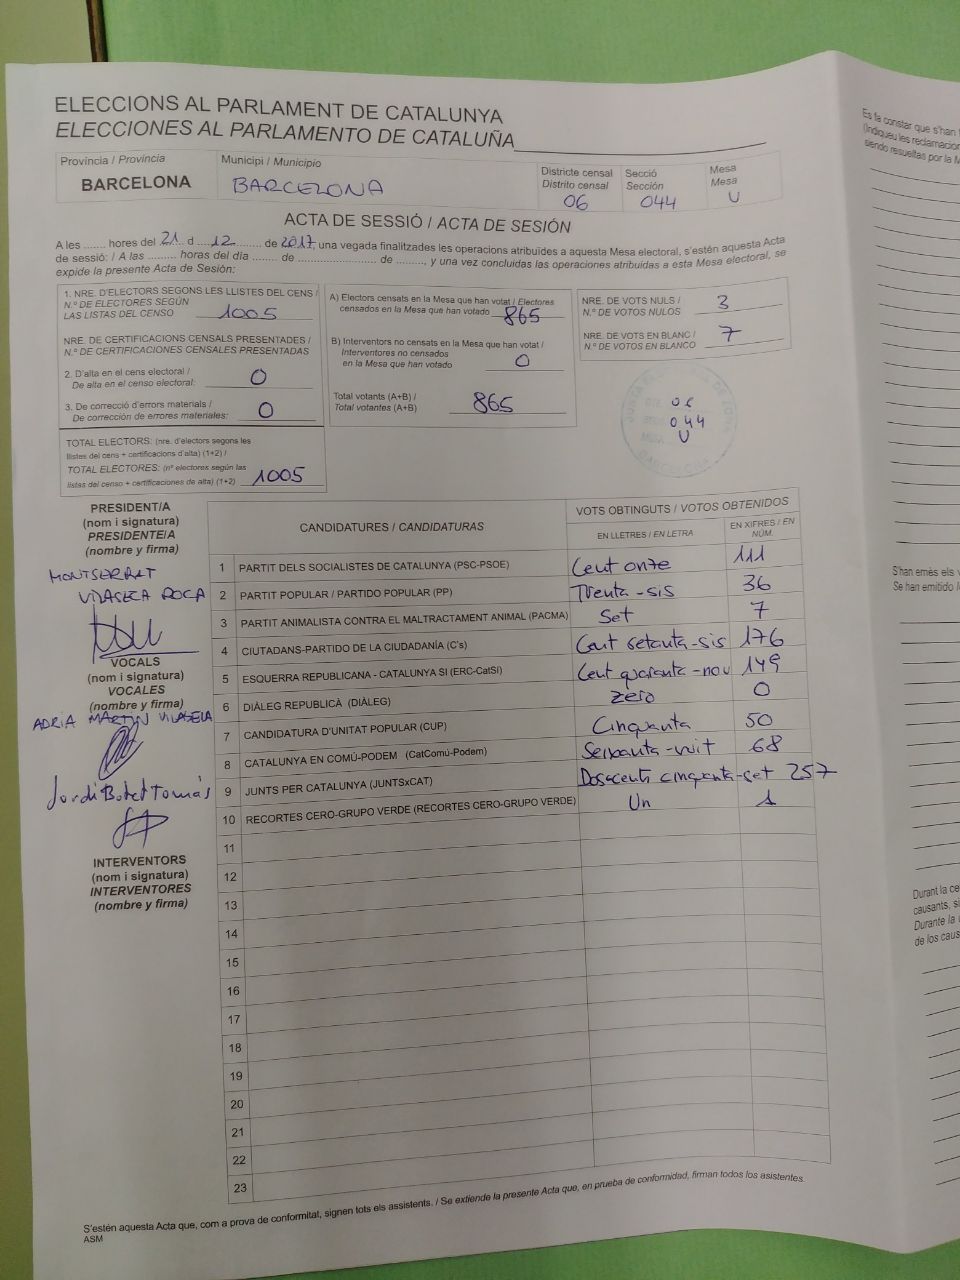 ELECCIONS AL PARLAMENT DE CATALUNYA
ELECCIONES AL PARLAMENTO DE CATALUÑA
Província / Provincia
BARCELONA
Municipi / Municipio
BARCELONA
Districte censal
Distrito censal
06
Secció
Sección
044
Mesa
Mesa
U
ACTA DE SESSIÓ / ACTA DE SESIÓN
A les ....... hores del 21 d 12 de 2017 una vegada finalitzades les operacions atribuïdes a aquesta Mesa electoral, s'estén aquesta Acta
de sessió: / A las ......... horas del día ....... de ...................... de ........, y una vez concluidas las operaciones atribuidas a esta Mesa electoral, se
expide la presente Acta de Sesión:
1. NRE. D'ELECTORS SEGONS LES LLISTES DEL CENS /
N.º DE ELECTORES SEGÚN
LAS LISTAS DEL CENSO 1005
NRE. DE CERTIFICACIONS CENSALS PRESENTADES /
N.º DE CERTIFICACIONES CENSALES PRESENTADAS
2. D'alta en el cens electoral /
De alta en el censo electoral: 0
3. De correcció d'errors materials /
De corrección de errores materiales: 0
TOTAL ELECTORS: (nre. d'electors segons les
llistes del cens + certificacions d'alta) (1+2) /
TOTAL ELECTORES: (nº electores según las
listas del censo + certificaciones de alta) (1+2) 1005
A) Electors censats en la Mesa que han votat / Electores
censados en la Mesa que han votado 865
B) Interventors no censats en la Mesa que han votat /
Interventores no censados
en la Mesa que han votado 0
Total votants (A+B) /
Total votantes (A+B) 865
NRE. DE VOTS NULS /
N.º DE VOTOS NULOS 3
NRE. DE VOTS EN BLANC /
N.º DE VOTOS EN BLANCO 7
JUNTA ELECTORAL DE ZONA
06
044
MESA U
BARCELONA
PRESIDENT/A
(nom i signatura)
PRESIDENTE/A
(nombre y firma)
MONTSERRAT
VILASECA ROCA
VOCALS
(nom i signatura)
VOCALES
(nombre y firma)
ADRIA MARTIN VILASECA
Jordi Botet Tomás
INTERVENTORS
(nom i signatura)
INTERVENTORES
(nombre y firma)
CANDIDATURES / CANDIDATURAS
VOTS OBTINGUTS / VOTOS OBTENIDOS
EN LLETRES / EN LETRA
EN XIFRES / EN
NÚM.
1 PARTIT DELS SOCIALISTES DE CATALUNYA (PSC-PSOE) Cent onze 111
2 PARTIT POPULAR / PARTIDO POPULAR (PP) Trenta-sis 36
3 PARTIT ANIMALISTA CONTRA EL MALTRACTAMENT ANIMAL (PACMA) Set 7
4 CIUTADANS-PARTIDO DE LA CIUDADANÍA (C's) Cent setanta-sis 176
5 ESQUERRA REPUBLICANA - CATALUNYA SI (ERC-CatSí) Cent quaranta-nou 149
6 DIÀLEG REPUBLICÀ (DIÀLEG) zero 0
7 CANDIDATURA D'UNITAT POPULAR (CUP) Cinquanta 50
8 CATALUNYA EN COMÚ-PODEM (CatComú-Podem) Seixanta-vuit 68
9 JUNTS PER CATALUNYA (JUNTSxCAT) Doscents cinquanta-set 257
10 RECORTES CERO-GRUPO VERDE (RECORTES CERO-GRUPO VERDE) Un 1
11
12
13
14
15
16
17
18
19
20
21
22
23
S'estén aquesta Acta que, com a prova de conformitat, signen tots els assistents. / Se extiende la presente Acta que, en prueba de conformidad, firman todos los asistentes.
ASM
Es fa constar que s'han
(Indiqueu les reclamacion
sendo resueltas por la M
S'han emès els v
Se han emitido l
Durant la ce
causants, si
Durante la
de los caus